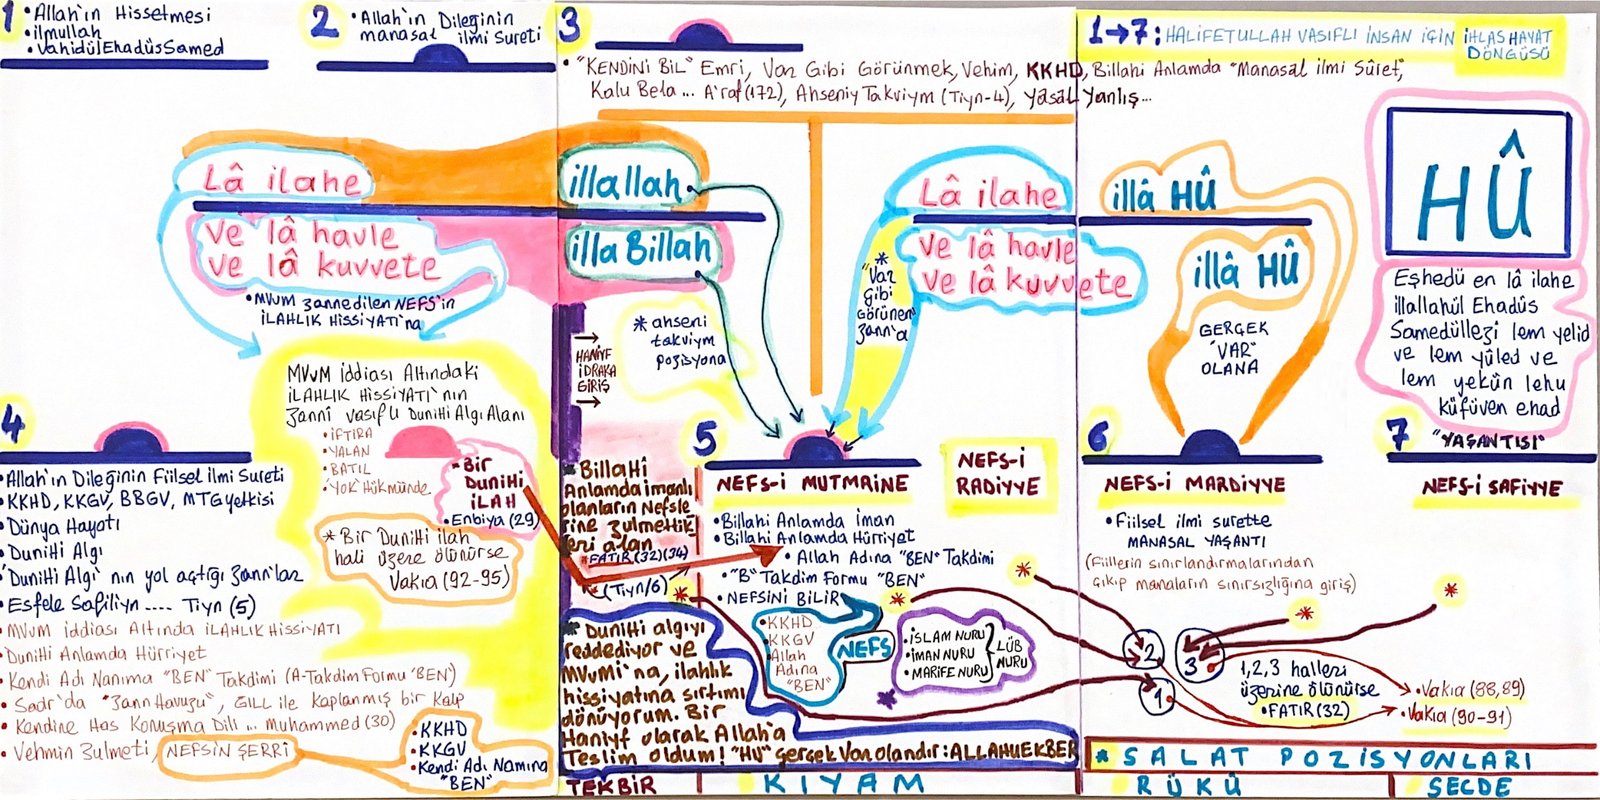 1
• Allah'ın Hissetmesi
• ilmullah
• VahidülEhadüsSamed
2
• Allah'ın Dileğinin
manasal ilmi Sureti
3
• "KENDİNİ BİL" Emri, Var Gibi Görünmek, Vehim, KKHD, Billahi Anlamda "Manasal ilmi Sûret",
Kalu Bela... A'raf(172), Ahseniy Takviym (Tiyn-4), Yasal Yanlış...
1→7: HALİFETULLAH VASIFLI İNSAN İÇİN İHLAS HAYAT
DÖNGÜSÜ
Lâ ilahe
illallah
ve lâ havle
ve lâ kuvvete
illa Billah
• MVvM zannedilen NEFS'in
İLAHLIK HİSSİYATI'na
* ahseni
takviym
pozisyona
→
HANİYF
İDRAKA
GİRİŞ
→
Lâ ilahe
illâ HÛ
ve lâ havle
ve lâ kuvvete
illâ HÛ
*
"Var
gibi
görünen"
zann'a
GERÇEK
"VAR"
OLANA
HÛ
Eşhedü en lâ ilahe
illallahül Ehadüs
Samedüllezi lem yelid
ve lem yûled ve
lem yekûn lehu
küfüven ehad
4
MVvM iddiası Altındaki
İLAHLIK HİSSİYATI'nın
zannî vasıflı DuniHi Algı Alanı
• İFTİRA
• YALAN
• BATIL
• 'YOK' Hükmünde
• Bir
DuniHi
İLAH
• Enbiya (29)
* Bir DuniHi ilah
hali üzere ölünürse
Vakıa (92-95)
• Allah'ın Dileğinin Fiilsel ilmi Sureti
• KKHD, KKGV, BBGV, MTG yetkisi
• Dünya Hayatı
• DuniHi Algı
• 'DuniHi Algı' nın yol açtığı zann'lar
• Esfele Safiliyn .... Tiyn (5)
• MVvM iddiası Altında İLAHLIK HİSSİYATI
• DuniHi Anlamda Hürriyet
• Kendi Adı Nanıma "BEN" Takdimi (A-Takdim Formu 'BEN')
• Sadr'da "Zann Havuzu", GILL ile Kaplanmış bir Kalp
• Kendine Has Konuşma Dili ... Muhammed (30)
• Vehmin Zulmeti, NEFSİN ŞERRİ
• KKHD
• KKGV
• Kendi Adı Namına
"BEN"
* BillaHi
Anlamda imanlı
olanların Nefsle
rine zulmettik
leri alan
* FATIR (32)(34)
* (Tiyn/6)
* DuniHi algıyı
reddediyor ve
MVvMi'na, ilahlık
hissiyatına sırtımı
dönüyorum. Bir
Haniyf olarak Allah'a
Teslim oldum! "Hu" gerçek Var olandır: ALLAHUEKBER
TEKBİR
KIYAM
5
NEFS-İ MUTMAİNE
NEFS-İ
RADİYYE
• Billahi Anlamda İman
• Billahi Anlamda Hürriyet
• Allah Adına "BEN" Takdimi
• "B" Takdim Formu "BEN"
• NEFSİNİ BİLİR
• KKHD
• KKGV
• Allah
Adına
"BEN"
NEFS
• İSLAM NURU
• İMAN NURU
• MARİFE NURU
LÜB
NURU
6
NEFS-İ MARDİYYE
• Fiilsel ilmi surette
MANASAL YAŞANTI
(Fiillerin sınırlandırmalarından
çıkıp manaların sınırsızlığına giriş)
7
"YAŞANTISI"
NEFS-İ SAFİYYE
2
3
1
1,2,3 halleri
üzerine ölünürse
• FATIR (32)
• Vakıa (88,89)
• Vakıa (90-91)
* SALAT POZİSYONLARI
RÜKÛ
SECDE